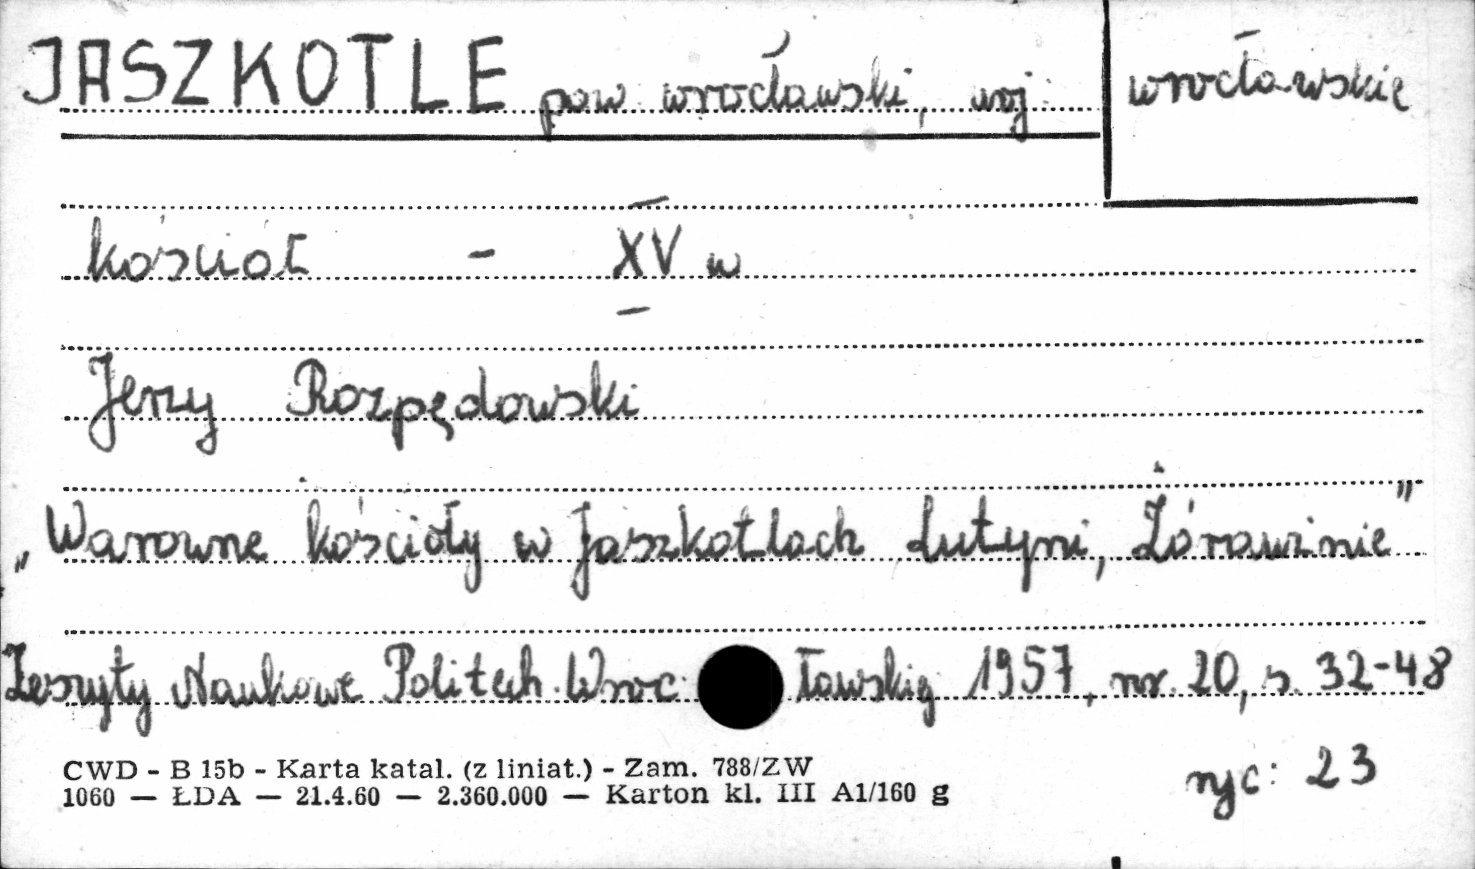 JASZKOTLE pow wrocławski, woj. wrocławskie
kościół - XV w
Jerzy Rozpędowski
„Warowne kościoły w Jaszkotlach Lutyni, Żórawinie"
Zeszyty Naukowe Politech. Wroc ławskiej 1957, nr. 20, s. 32-48
CWD - B 15b - Karta katal. (z liniat.) - Zam. 788/ZW
1060 — ŁDA — 21.4.60 — 2.360.000 — Karton kl. III A1/160 g
ryc: 23